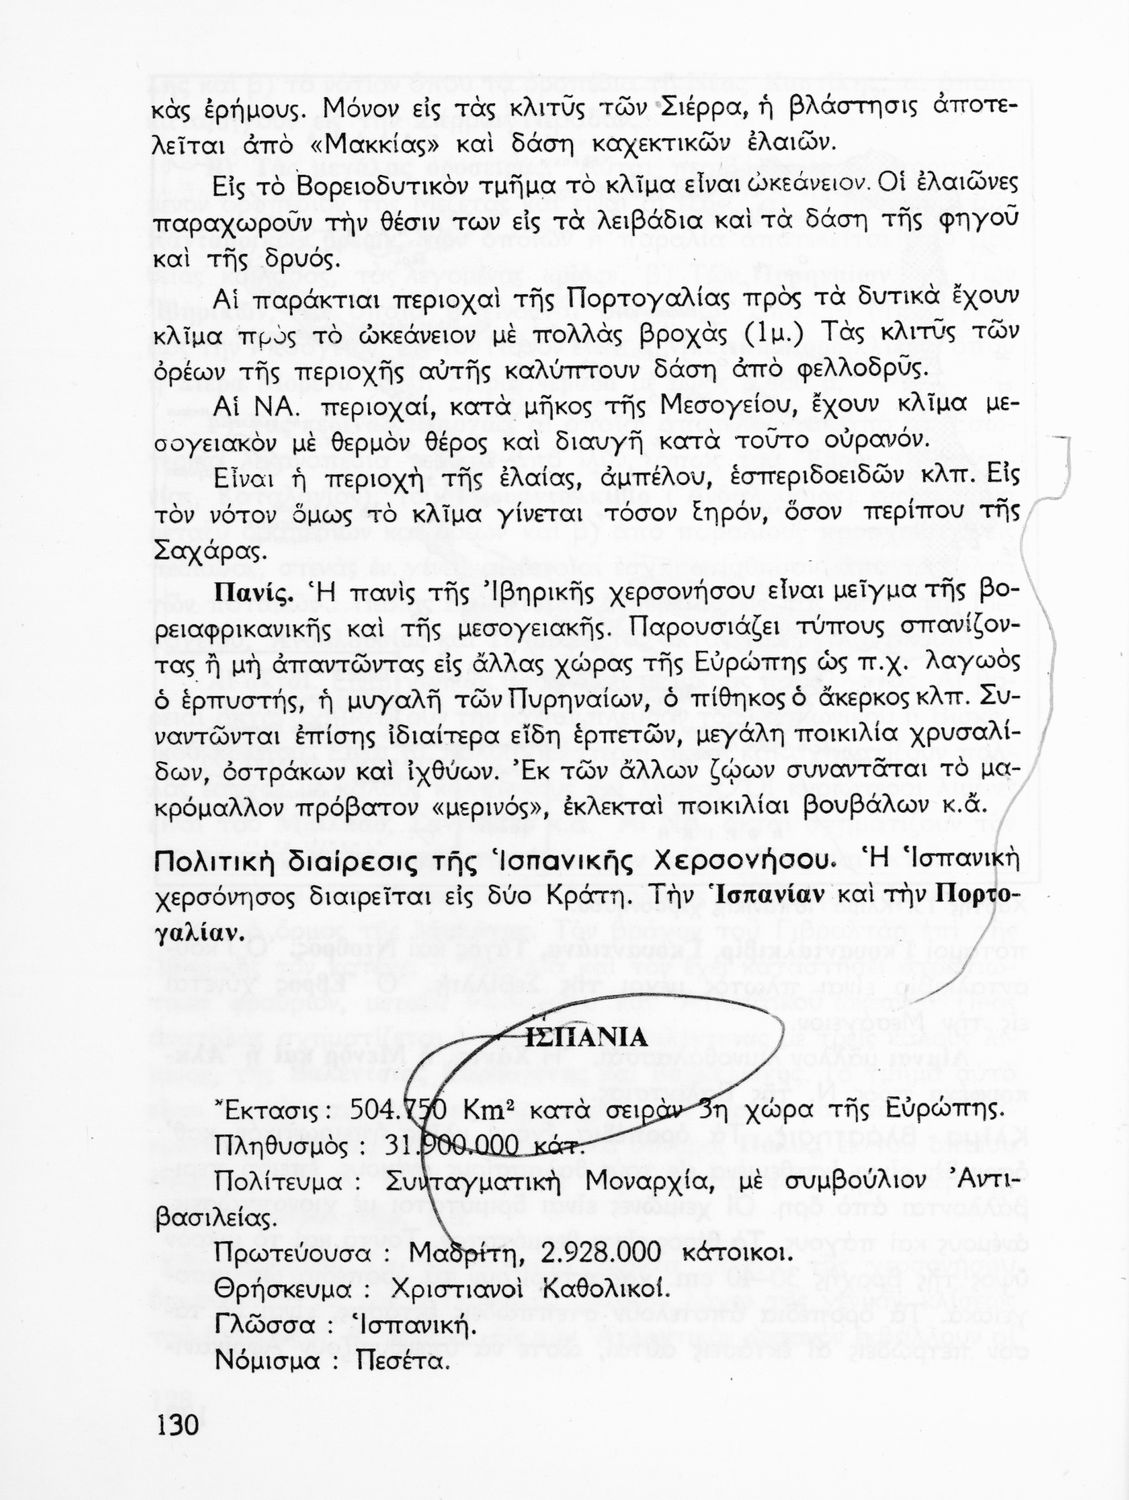 κὰς ἐρήμους. Μόνον εἰς τὰς κλιτῦς τῶν Σιέρρα, ἡ βλάστησις ἀποτε-
λεῖται ἀπὸ «Μακκίας» καὶ δάση καχεκτικῶν ἐλαιῶν.
Εἰς τὸ Βορειοδυτικὸν τμῆμα τὸ κλῖμα εἶναι ὠκεάνειον. Οἱ ἐλαιῶνες
παραχωροῦν τὴν θέσιν των εἰς τὰ λειβάδια καὶ τὰ δάση τῆς φηγοῦ
καὶ τῆς δρυός.
Αἱ παράκτιαι περιοχαὶ τῆς Πορτογαλίας πρὸς τὰ δυτικὰ ἔχουν
κλῖμα πρὸς τὸ ὠκεάνειον μὲ πολλὰς βροχὰς (1μ.) Τὰς κλιτῦς τῶν
ὀρέων τῆς περιοχῆς αὐτῆς καλύπτουν δάση ἀπὸ φελλοδρῦς.
Αἱ ΝΑ. περιοχαί, κατὰ μῆκος τῆς Μεσογείου, ἔχουν κλῖμα με-
σογειακὸν μὲ θερμὸν θέρος καὶ διαυγῆ κατὰ τοῦτο οὐρανόν.
Εἶναι ἡ περιοχὴ τῆς ἐλαίας, ἀμπέλου, ἑσπεριδοειδῶν κλπ. Εἰς
τὸν νότον ὅμως τὸ κλῖμα γίνεται τόσον ξηρόν, ὅσον περίπου τῆς
Σαχάρας.
Πανίς. Ἡ πανὶς τῆς Ἰβηρικῆς χερσονήσου εἶναι μεῖγμα τῆς βο-
ρειαφρικανικῆς καὶ τῆς μεσογειακῆς. Παρουσιάζει τύπους σπανίζον-
τας ἢ μὴ ἀπαντῶντας εἰς ἄλλας χώρας τῆς Εὐρώπης ὡς π.χ. λαγωὸς
ὁ ἑρπυστής, ἡ μυγαλῆ τῶν Πυρηναίων, ὁ πίθηκος ὁ ἄκερκος κλπ. Συ-
ναντῶνται ἐπίσης ἰδιαίτερα εἴδη ἑρπετῶν, μεγάλη ποικιλία χρυσαλί-
δων, ὀστράκων καὶ ἰχθύων. Ἐκ τῶν ἄλλων ζῴων συναντᾶται τὸ μα-
κρόμαλλον πρόβατον «μερινός», ἐκλεκταὶ ποικιλίαι βουβάλων κ.ἄ.
Πολιτικὴ διαίρεσις τῆς Ἱσπανικῆς Χερσονήσου. Ἡ Ἱσπανικὴ
χερσόνησος διαιρεῖται εἰς δύο Κράτη. Τὴν Ἱσπανίαν καὶ τὴν Πορτο-
γαλίαν.
ἹΣΠΑΝΙΑ
Ἔκτασις : 504.750 Km² κατὰ σειρὰν 3η χώρα τῆς Εὐρώπης.
Πληθυσμὸς : 31.900.000 κάτ.
Πολίτευμα : Συνταγματικὴ Μοναρχία, μὲ συμβούλιον Ἀντι-
βασιλείας.
Πρωτεύουσα : Μαδρίτη, 2.928.000 κάτοικοι.
Θρήσκευμα : Χριστιανοὶ Καθολικοί.
Γλῶσσα : Ἱσπανική.
Νόμισμα : Πεσέτα.
130